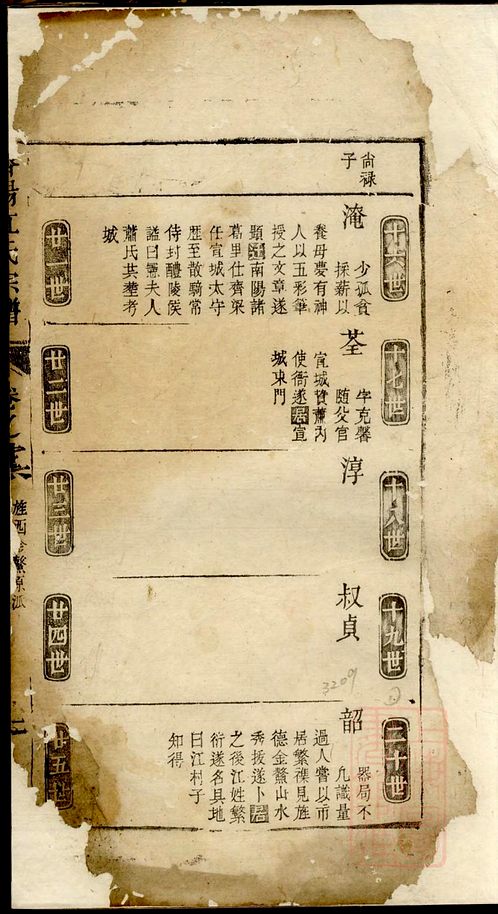 尙祿
子
十六世
淹
少孤貧
採薪以
養母夢有神
人以五彩筆
授之文章遂
顯遷南陽諸
葛里仕齊梁
任宣城太守
歴至散騎常
侍封醴陵侯
諡曰憲夫人
蕭氏共塟考
城
廿一世
十七世
荃
字克馨
隨父官
宣城贅蕭內
使衙遂居宣
城東門
廿二世
十八世
淳
廿三世
十九世
叔貞
廿四世
二十世
韶
器局不
凡識量
過人嘗以市
居繁襍見旌
德金鰲山水
秀拔遂卜居
之後江姓繁
衍遂名其地
曰江村子
知得
廿五世
陽江氏宗譜
卷之
旌西金鰲原派
3209